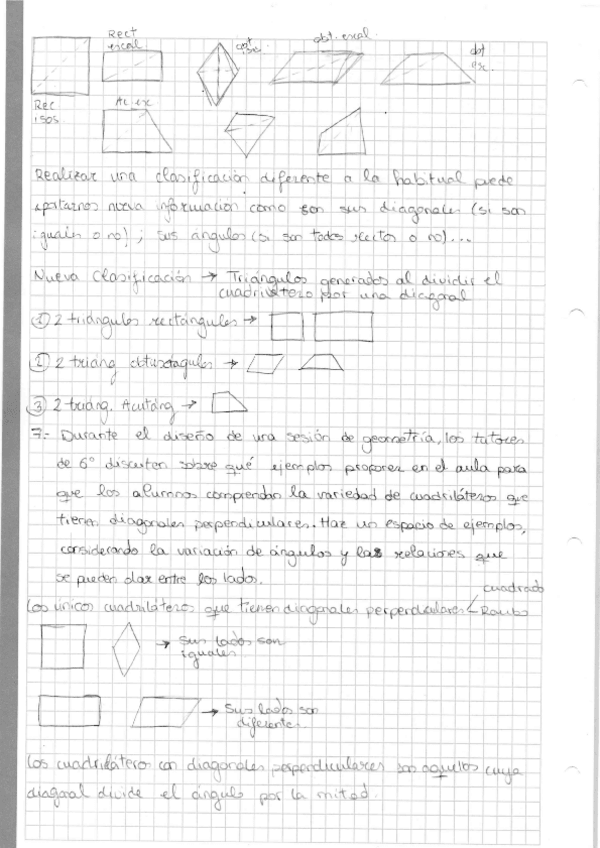 Rect
escal
obt. escal
obt
esc.
Rec
isos
Ac. esc
Realizar una clasificación diferente a la habitual puede
aportarnos nueva información como son sus diagonales (si son
iguales o no); sus angulos (si son todos rectos o no)...
Nueva Clasificación → Triángulos generados al dividir el
cuadrilátero por una diagonal
① 2 triángulos rectángulos →
② 2 triang obtusangulos →
③ 2 triáng. Acutáng →
7.- Durante el diseño de una sesión de geometría, los tutores
de 6º discuten sobre qué ejemplos proponer en el aula para
que los alumnos comprendan la variedad de cuadriláteros que
tienen diagonales perpendiculares. Haz un espacio de ejemplos,
considerando la variación de ángulos y las relaciones que
se pueden dar entre los lados.
cuadrado
Los únicos cuadriláteros que tienen diagonales perpendiculares Rombo
→ Sus lados son
iguales
→ Sus lados son
diferente
Los cuadriláteros con diagonales perpendiculares son aquellos cuya
diagonal divide el ángulo por la mitad.